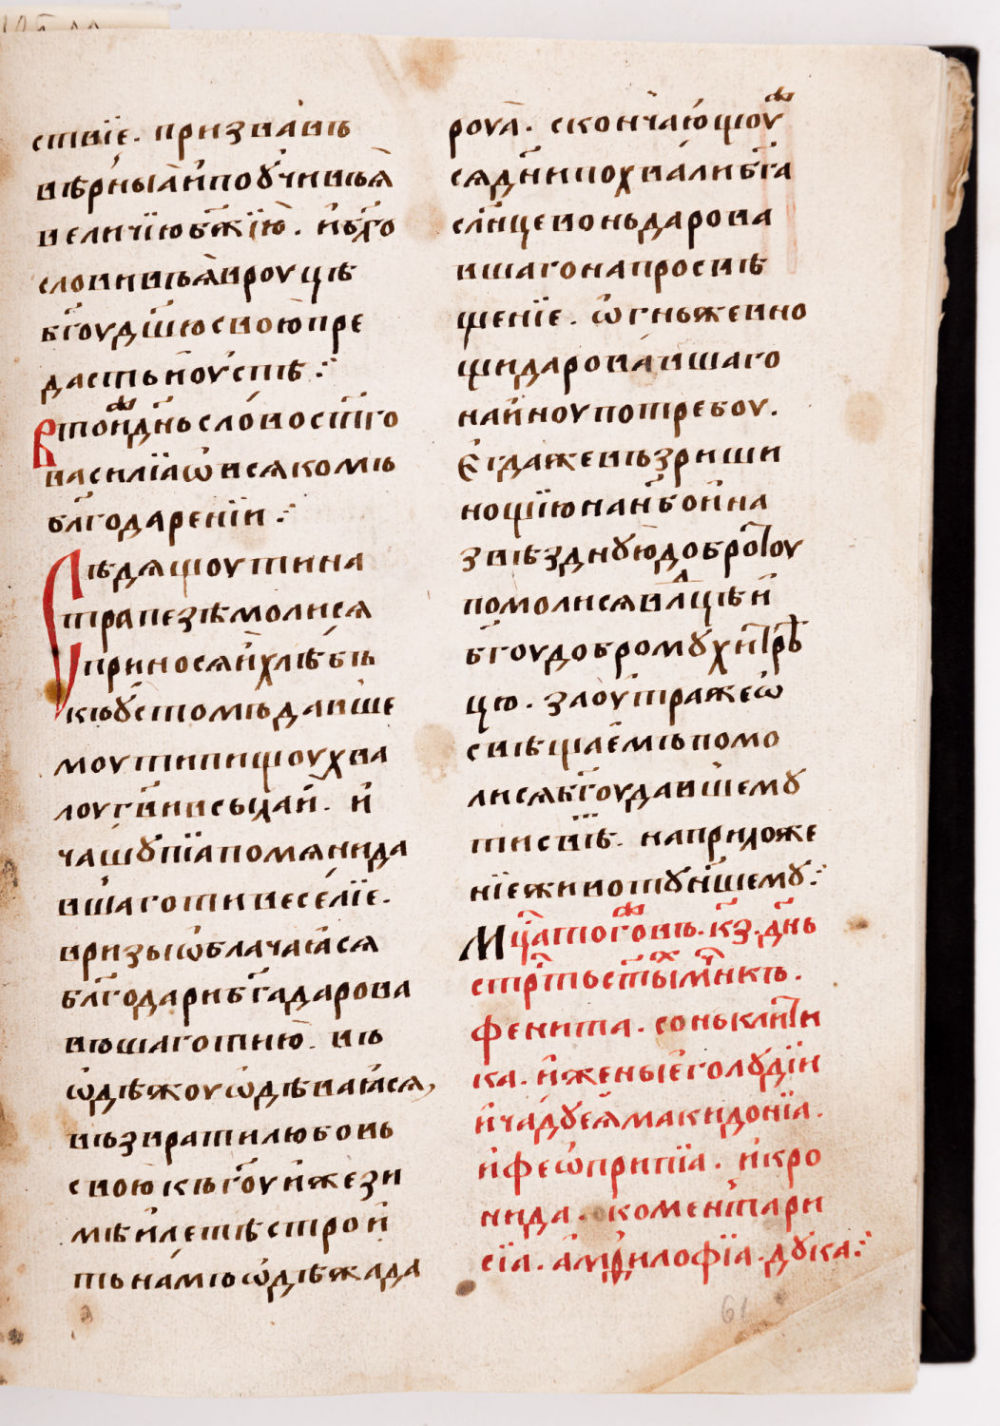 ствїе. призвавъ
вѣрныѧ и поучивъѧ
величїю бж҃їю. и бл҃го
словивъѧ в роуцѣ
бг҃оу дш҃ю свою пре
дасть ноустѣ ⁘
В тои дн҃ь слово ст҃го
василїа ѡ всякомъ
бл҃годаренїи ⁘
Сѣдя шоути на
трапезѣ молися
приносяй хлѣбъ
къ ꙋстомъ давше
моу ти пищоу хва
лоу гв҃и въсылай. и
чашꙋ пїа помяни да
вшаго ти веселїе.
в ризы ѡблачаꙗся
бл҃годари бг҃а дарова
въшаго тию. въ
ѡдѣжоу ѡдѣваꙗся,
възврати любовь
свою къ бг҃оу иже зи
мѣ и летѣ строи
ть намъ ѡдѣжа да
роуꙗ. скончающоу
ся дн҃и похвали бг҃а
сл҃нце во нь дарова
вшаго на просвѣ
щенїе. ѡгнь же в но
щи даровавшаго
на иноу потребоу.
Егда же възриши
нощїю на нб҃о и на
звѣзднꙋю добротоу
помолися вл҃цѣ и
бг҃оу добромꙋ хитре
цю. заоутра же ѡ
свѣщаемъ помо
лися бг҃оу давшемꙋ
ти свѣ. на приложе
нїе животꙋ н҃шемꙋ ⁘
Мц҃а того въ. к҃з. дн҃ь
стрть ст҃ых мч҃нкъ.
фенита. сонъклити
ка. и жены его лꙋдїи
и чадꙋ еѧ макидонїа.
и феѡприпїа. и кро
нида. коментари
сїа. амфилофїа. дꙋка ⁘
61